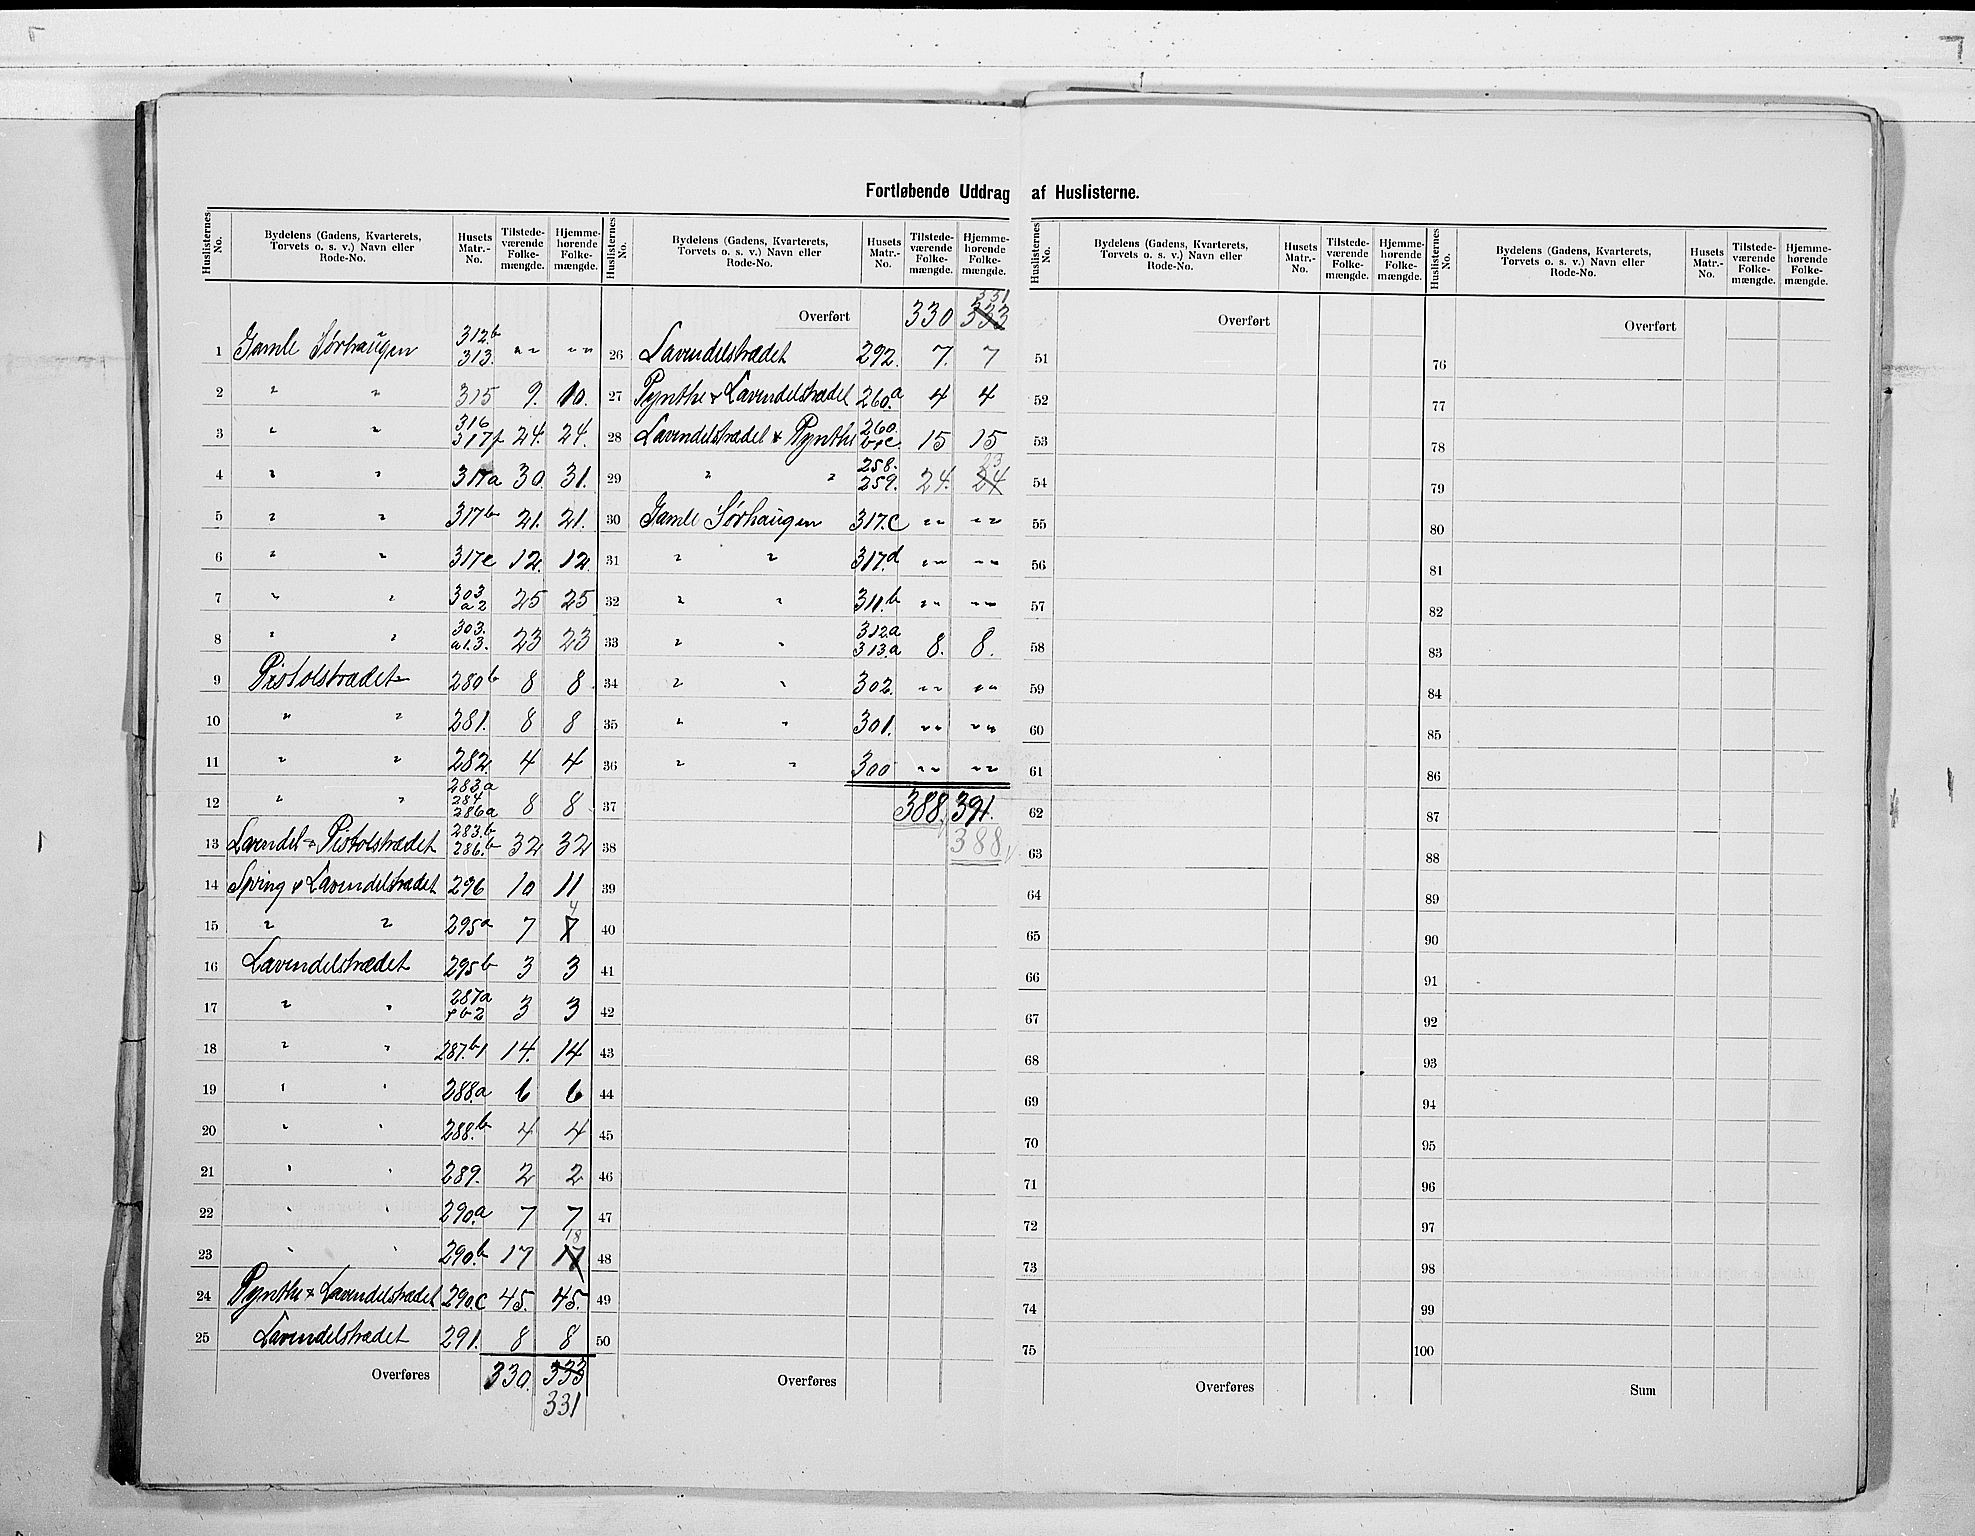 Fortløbende Uddrag af Huslisterne.
Huslisternes No. | Bydelens (Gadens, Kvarterets, Torvets o. s. v.) Navn eller Rode-No. | Husets Matr.-No. | Tilstede-værende Folke-mængde. | Hjemme-hørende Folke-mængde.
1 Gamle Sørhaugen 312b 313. " " " "
2 " " 315 9. 10.
3 " " 316 317f 24. 24.
4 " " 317a 30. 31.
5 " " 317b 21. 21.
6 " " 317e 12. 12.
7 " " 303 a2 25 25
8 " " 303. a1.3. 23 23
9 Pistolstrædet 280b 8 8
10 " " 281. 8 8
11 " " 282. 4 4
12 " " 283a 284 286a 8 8
13 Lavendel & Pistolstrædet 283.b 286.b 32 32
14 Spring & Lavendelstrædet 296 10 11
15 " " 295a 7 7 4
16 Lavendelstrædet 295b 3 3
17 " " 287a & b2 3 3
18 " " 287.b1 14. 14
19 " " 288.a 6 6
20 " " 288.b 4 4
21 " " 289. 2 2
22 " " 290.a 7 7
23 " " 290.b 17 17 18
24 Pynthe & Lavendelstrædet 290.c 45. 45.
25 Lavendelstrædet 291. 8 8
Overføres 330. 333
331
Huslisternes No. | Bydelens (Gadens, Kvarterets, Torvets o. s. v.) Navn eller Rode-No. | Husets Matr.-No. | Tilstede-værende Folke-mængde. | Hjemme-hørende Folke-mængde.
331
Overført 330 333
26 Lavendelstrædet 292. 7. 7
27 Pynthe & Lavendelstrædet 260.a 4 4
28 Lavendelstrædet & Pynthe 260. b&c. 15 15
29 " " 258. 259. 24. 24 23
30 Gamle Sørhaugen 317.c " " " "
31 " " 317.d " " " "
32 " " 311.b " " " "
33 " " 312.a 313.a 8. 8.
34 " " 302. " " " "
35 " " 301. " " " "
36 " " 300 " " " "
37 388. 391.
38 388
39
40
41
42
43
44
45
46
47
48
49
50
Overføres
Huslisternes No. | Bydelens (Gadens, Kvarterets, Torvets o. s. v.) Navn eller Rode-No. | Husets Matr.-No. | Tilstede-værende Folke-mængde. | Hjemme-hørende Folke-mængde.
Overført
51
52
53
54
55
56
57
58
59
60
61
62
63
64
65
66
67
68
69
70
71
72
73
74
75
Overføres
Huslisternes No. | Bydelens (Gadens, Kvarterets, Torvets o. s. v.) Navn eller Rode-No. | Husets Matr.-No. | Tilstede-værende Folke-mængde. | Hjemme-hørende Folke-mængde.
Overført
76
77
78
79
80
81
82
83
84
85
86
87
88
89
90
91
92
93
94
95
96
97
98
99
100
Sum